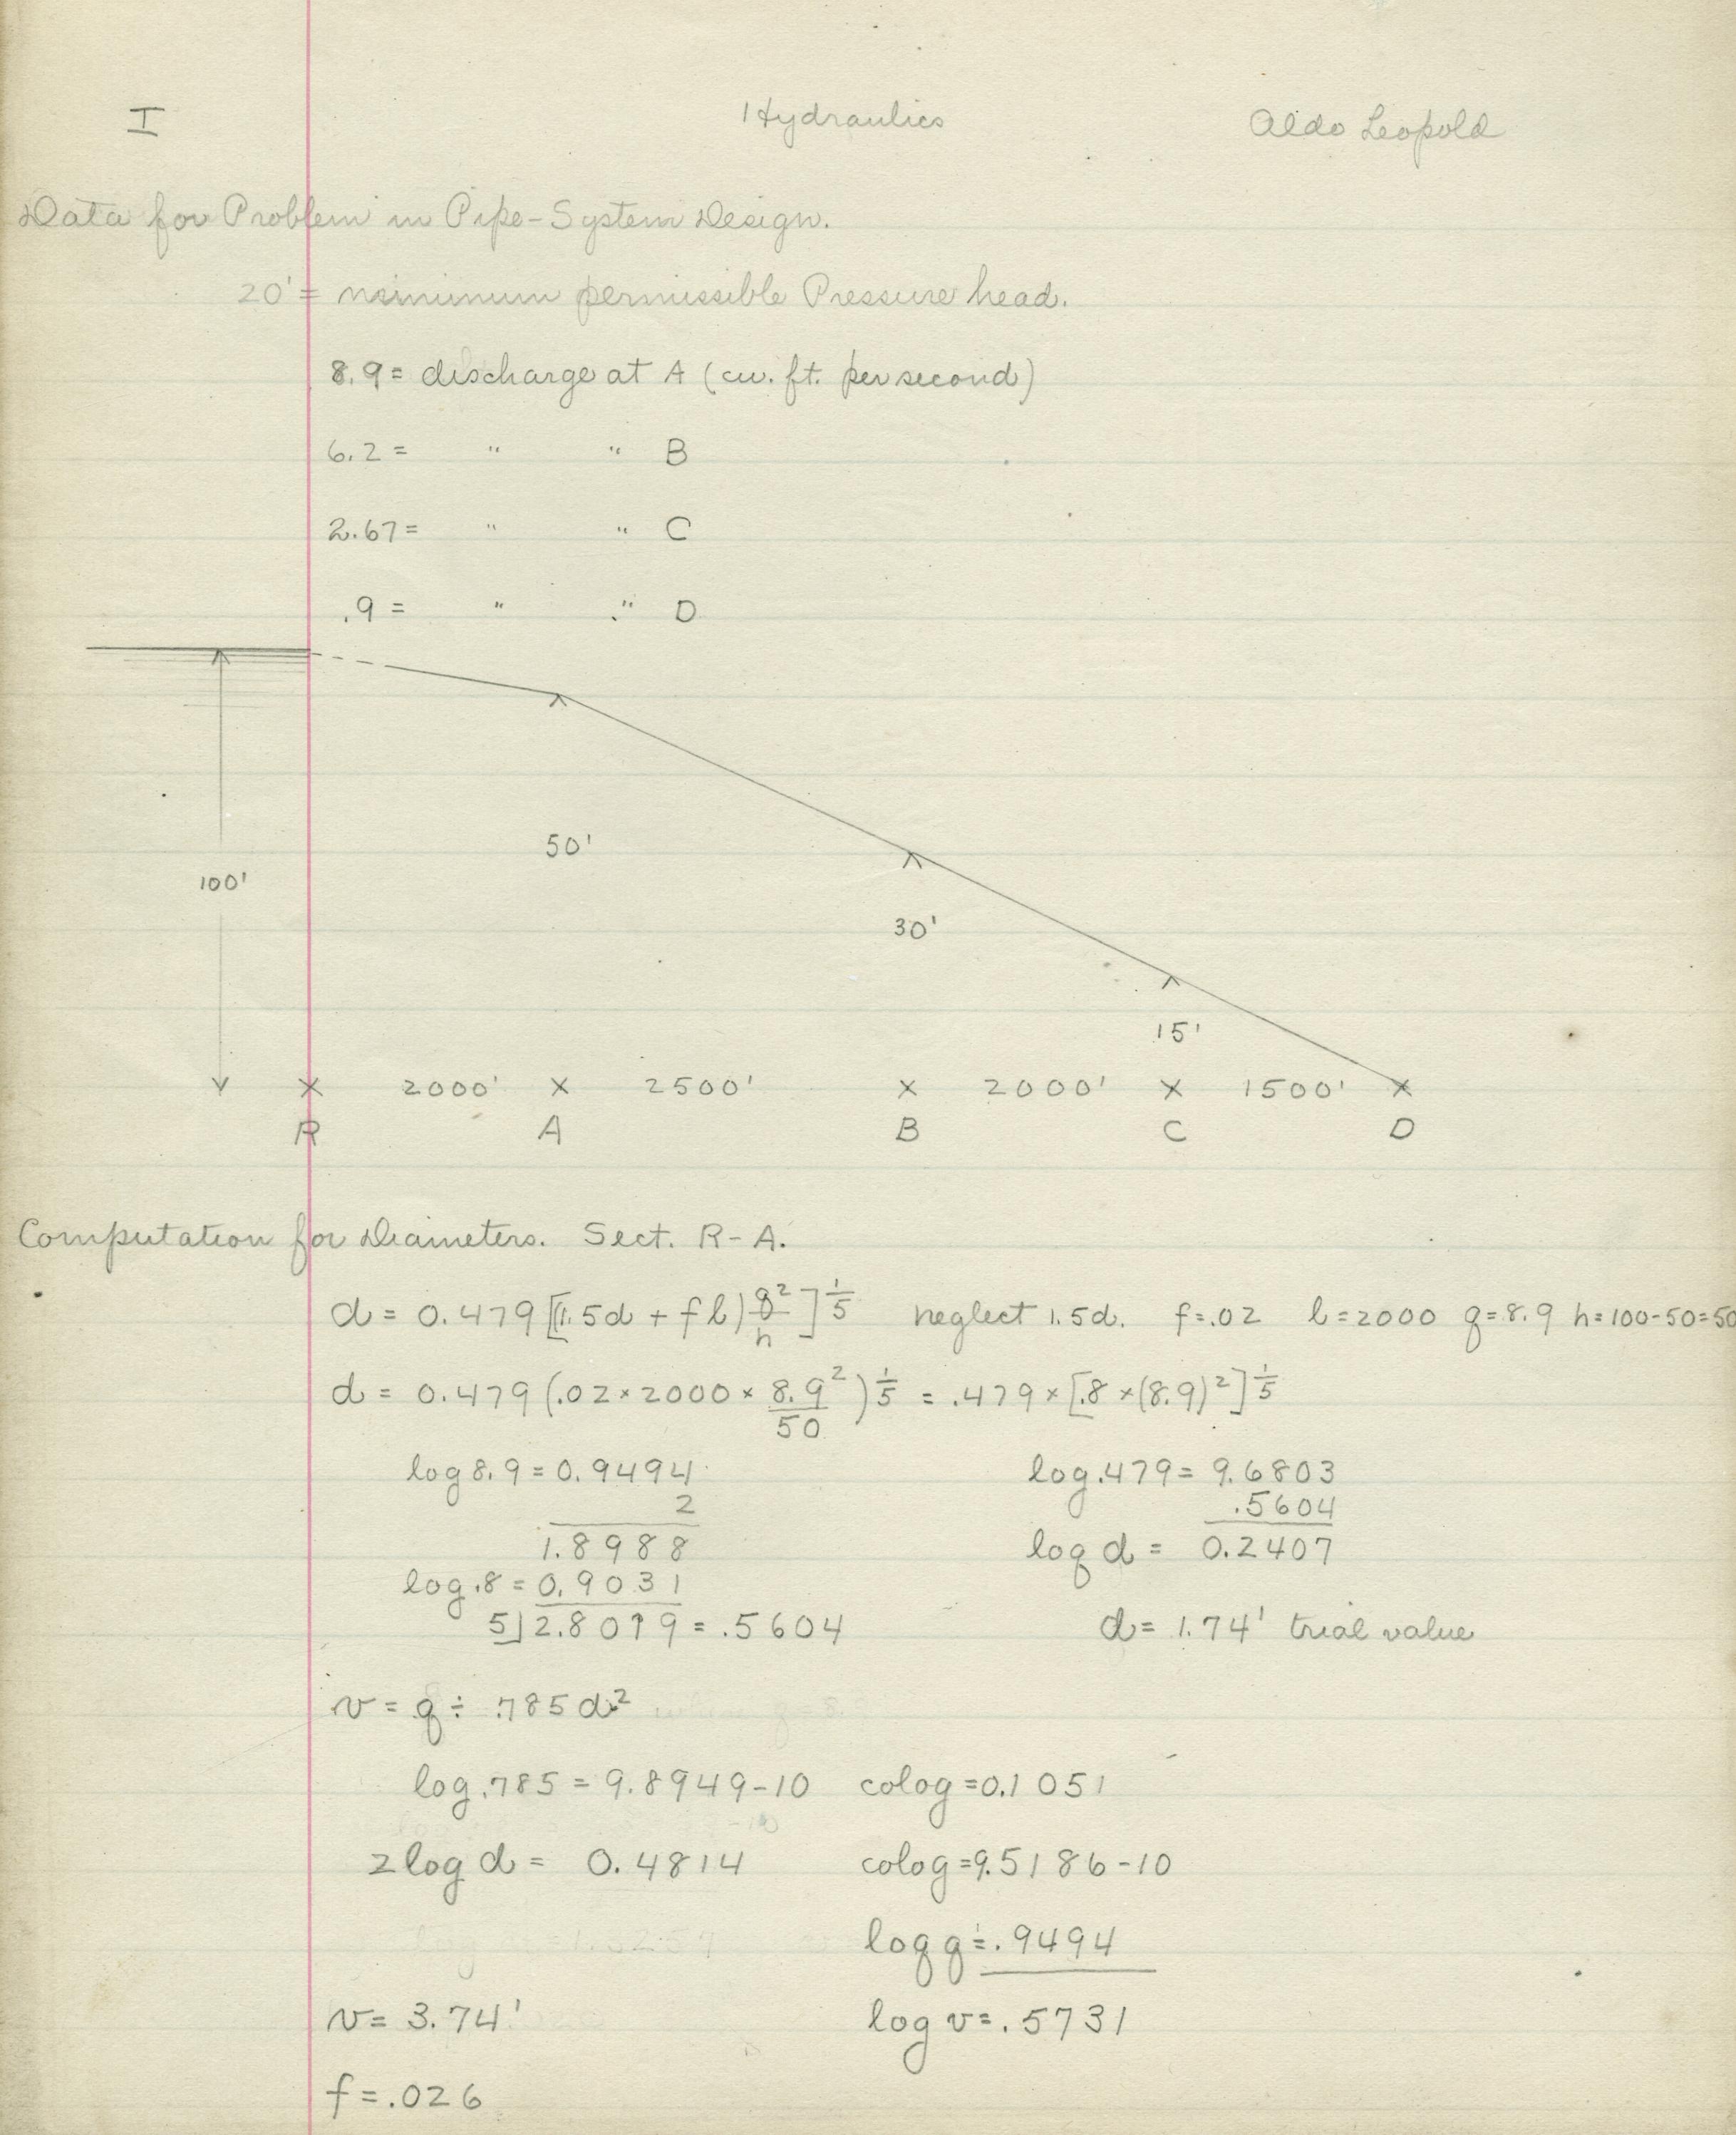 I Hydraulics Aldo Leopold
Data for Problem in Pipe-System Design.
20' = minimum permissible Pressure head.
8.9 = discharge at A (cu. ft. per second)
6.2 = " " B
2.67 = " " C
.9 = " " D
50'
100'
30'
15'
2000' 2500' 2000' 1500'
R A B C D
Computation for Diameters. Sect. R-A.
d = 0.479 [(1.5d + fl) q²/h]^1/5 neglect 1.5d. f=.02 l=2000 q=8.9 h=100-50=50
d = 0.479 (.02 × 2000 × 8.9²/50)^1/5 = .479 × [.8 × (8.9)²]^1/5
log 8.9 = 0.9494 log .479 = 9.6803
2 .5604
1.8988 log d = 0.2407
log .8 = 0.9031
5)2.8019 = .5604 d = 1.74' trial value
v = q ÷ .785 d²
log .785 = 9.8949-10 colog = 0.1051
2 log d = 0.4814 colog = 9.5186-10
log q = .9494
v = 3.74' log v = .5731
f = .026